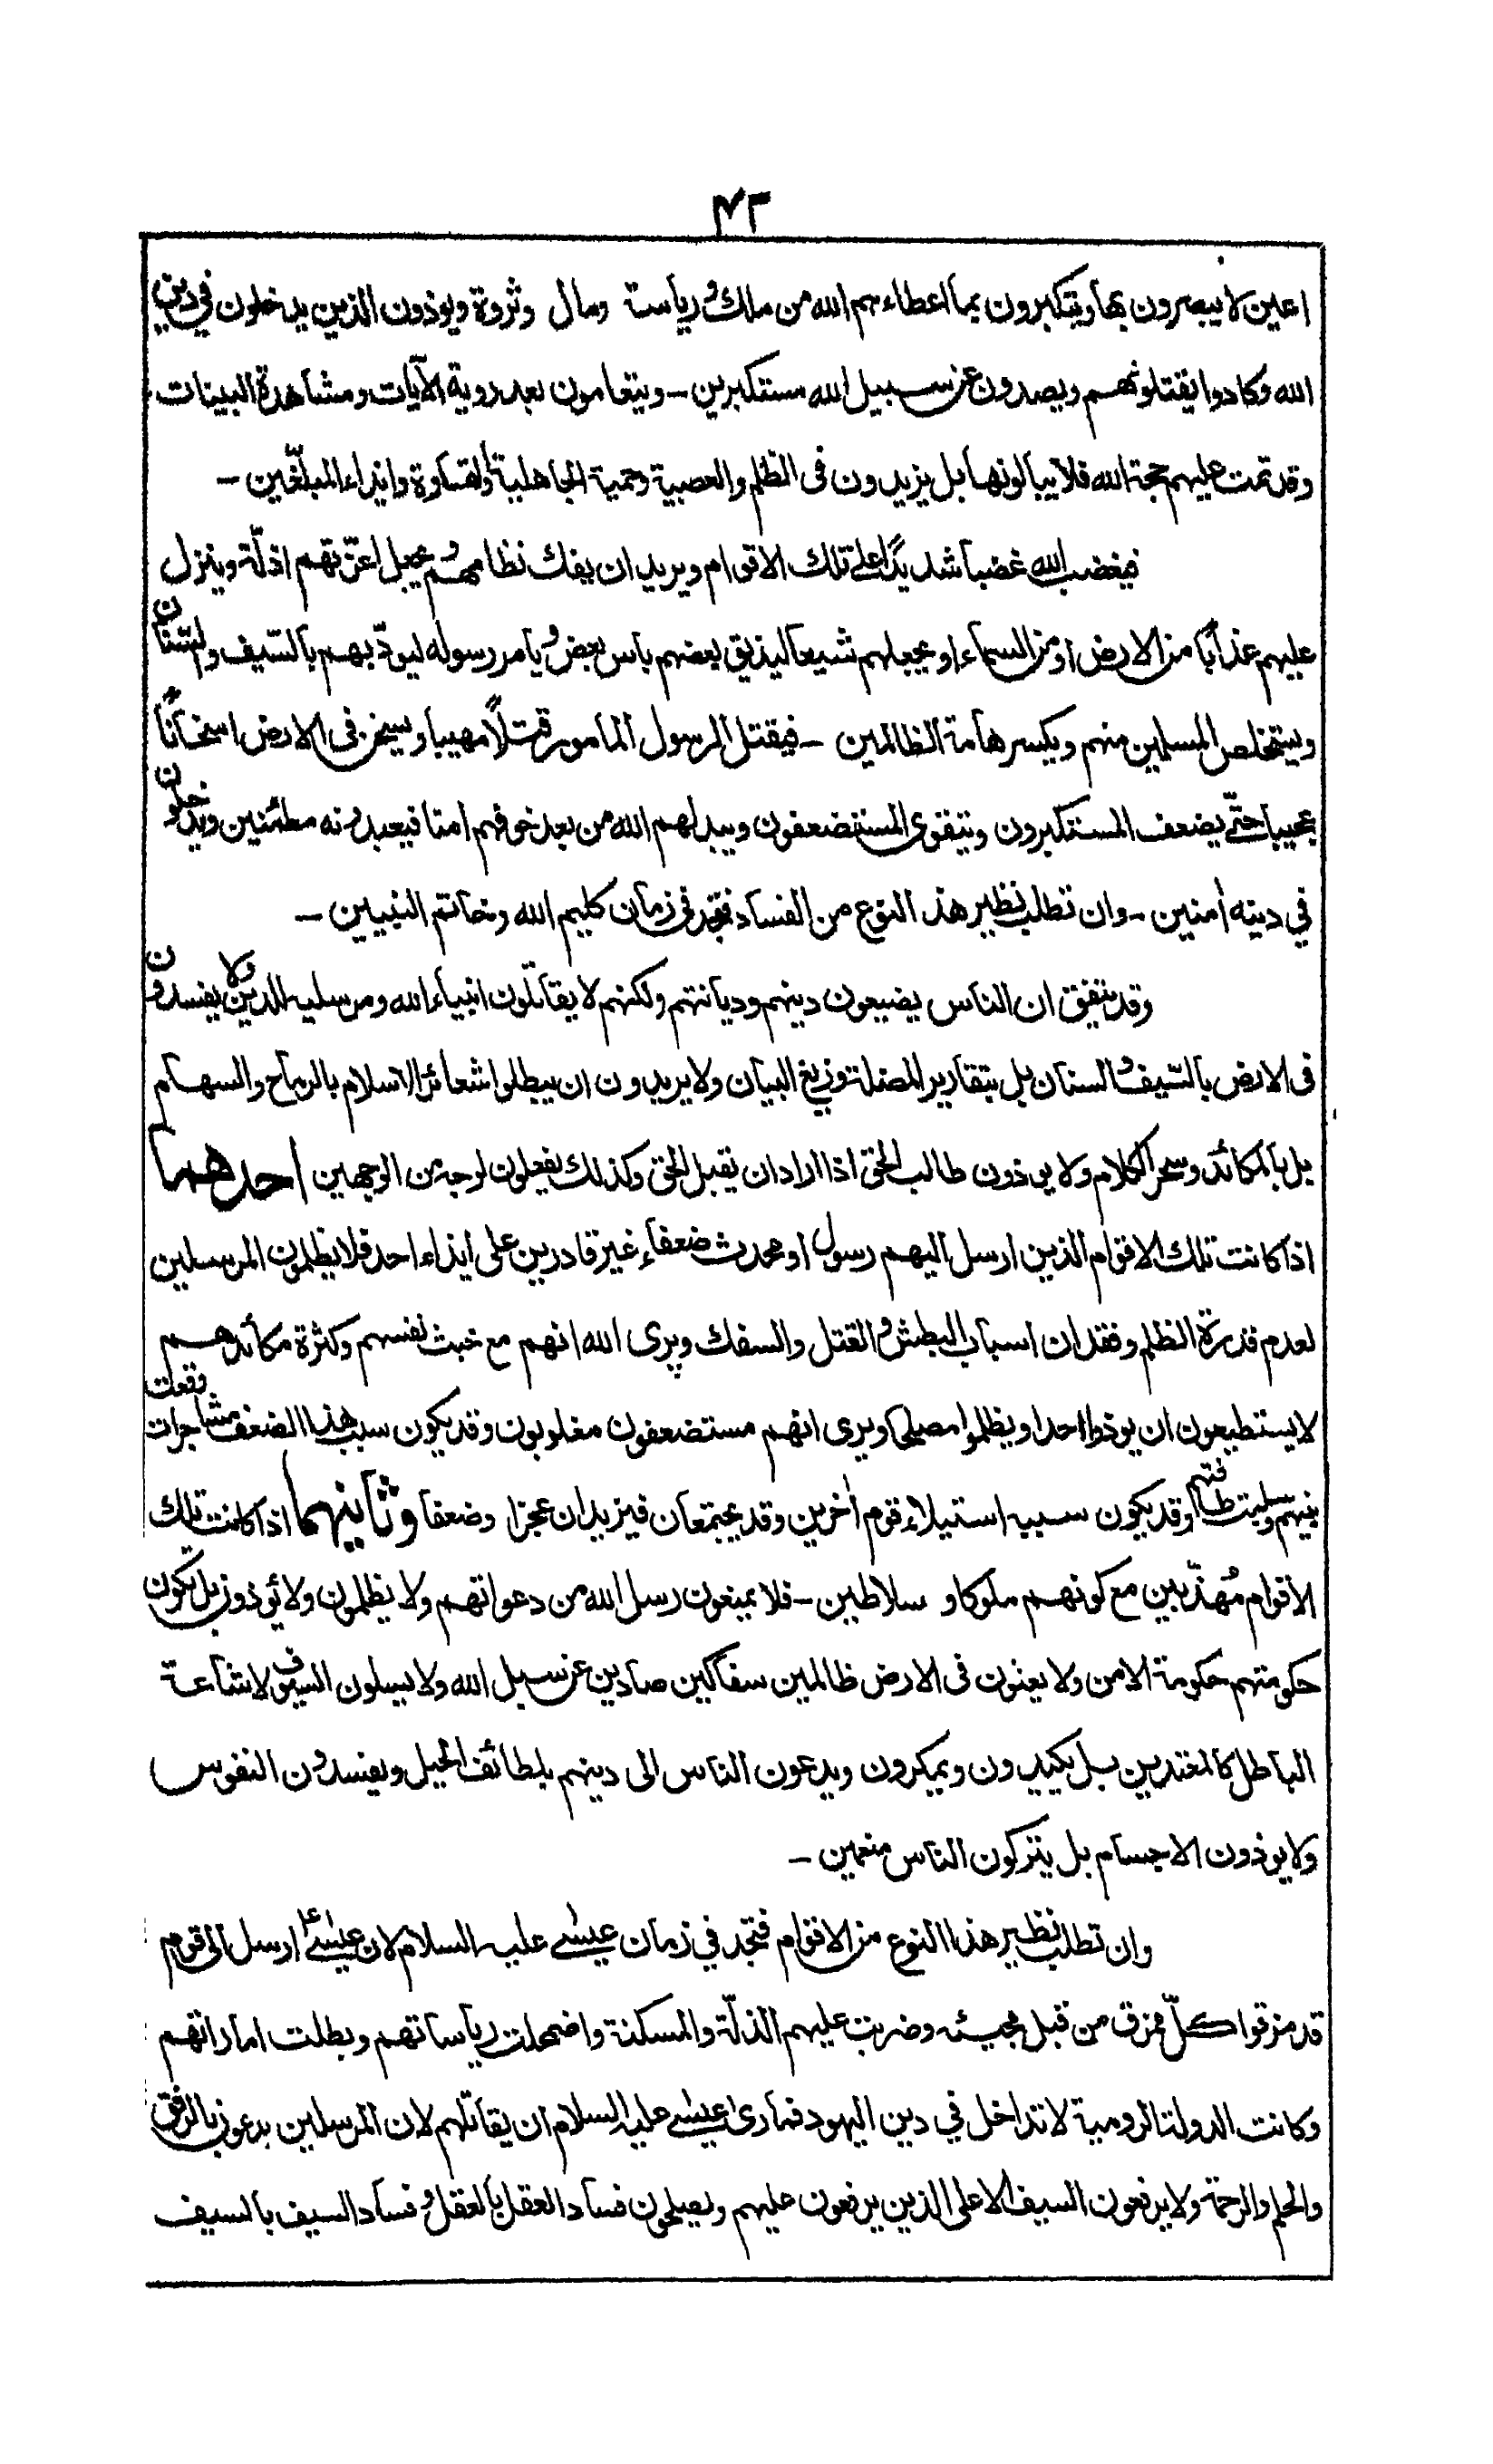 ۴۳
اعين لا يبصرون بها ويتكبرون بما اعطاءهم الله من ملك و رياست ومال وثروة ويوذون الذين يدخلون في دين
الله وكادوا يقتلونهم ويصدون عن سبيل الله مستكبرين - ويتعامون بعد روية الآيات ومشاهدة البينات
وقد تمت عليهم حجة الله فلا يبالونها بل يزيدون فى الظلم والعصبية وحمية الجاهلية والقساوة وايذاء المبلّغين -
فيغضب الله غضباً شديدًا على تلك الاقوام ويريد ان يفك نظامهم و يجعل اعزّتهم اذلّة وينزل
عليهم عذابًا من الارض او من السماء او يجعلهم شيعاً ليذيق بعضهم باس بعض و يامر رسوله ليودّبهم بالسّيف والسّنان
ويستخلص المسلمين منهم ويكسر هامة الظالمين - فيقتل الرسول المامور قتلًا مهيبا ويسخن فى الارض اسخانًا
عجيبا حتّى يضعف المستكبرون ويتقوى المستضعفون ويبدلهم الله من بعد خوفهم امنا فيعبدونه مطمئنين ويدخلون
في دينه اٰمنين - وان تطلب نظير هذ النوع من الفساد فتجد فى زمان كليم الله وخاتم النبيين -
وقد يتفق ان الناس يضيعون دينهم وديانتهم ولكنهم لا يقاتلون انبياء الله ومرسليه للدين ولا يفسدون
فى الارض بالسّيف والسنان بل بتقارير المضلة وزيغ البيان ولا يريدون ان يبطلوا شعائر الاسلام بالرماح والسهام
بل بالمكائد وسحر الكلام ولا يوذون طالب الحق اذا اراد ان يقبل الحق وكذلك يفعلون لوجه من الوجهين احدهما
اذا كانت تلك الاقوام الذين ارسل اليهم رسول او محدث ضعفاء غير قادرين على ايذاء احد فلا يظلمون المرسلين
لعدم قدرة الظلم وفقدان اسباب البطش و القتل والسفك ويرى الله انهم مع خبث نفسهم وكثرة مكائدهم
لا يستطيعون ان يوذوا احدا ويظلموا مصلحا ويرى انهم مستضعفون مغلوبون وقد يكون سبب هذا الضعف مشاجرات وقعت
بينهم وسلبت طاقتهم وقد يكون سببه استيلاء قوم اٰخرين وقد يجتمعان فيزيدان عجزا وضعفا وثانيهما اذا كانت تلك
الاقوام مُهذّبين مع كونهم ملوكا و سلاطين - فلا يمنعون رسل الله من دعواتهم ولا يظلمون ولا يوذون بل تكون
حكومتهم حكومة الامن ولا يعثون فى الارض ظالمين سفاكين صادين عن سبيل الله ولا يسلون السيوف لاشاعة
الباطل كالمعتدين بل يكيدون ويمكرون ويدعون الناس الى دينهم بلطائف الحيل ويفسدون النفوس
ولا يوذون الاجسام بل يتركون الناس منعمين -
وان تطلب نظير هذا النوع من الاقوام فتجد في زمان عيسٰى عليه السلام لان عيسٰىؑ ارسل الى قوم
قد مزقوا كلّ ممزق من قبل مجيئه وضربت عليهم الذلّة والمسكنة واضمحلت رياساتهم وبطلت اماراتهم
وكانت الدولة الرومية لا تداخل في دين اليهود فما رىٰ عيسٰى عليه السلام ان يقاتلهم لان المرسلين يدعون بالرفق
والحلم والرحمة ولا يرفعون السيف الا على الذين يرفعون عليهم ويصلحون فساد العقل بالعقل و فساد السيف بالسيف